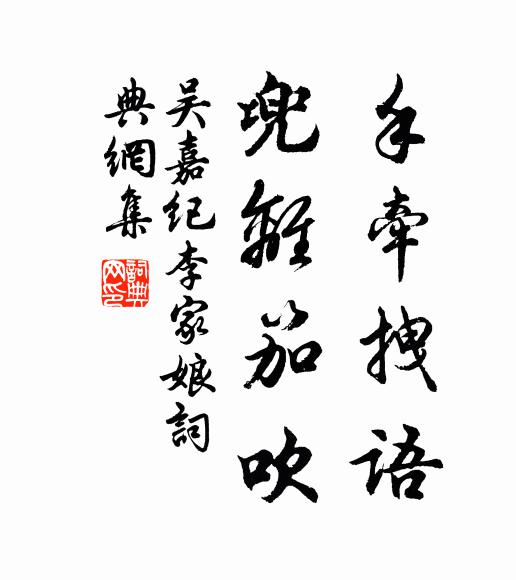 手牽拽語
兜離笳吹
吳嘉紀李家娘詞
典網集
詞典
网印